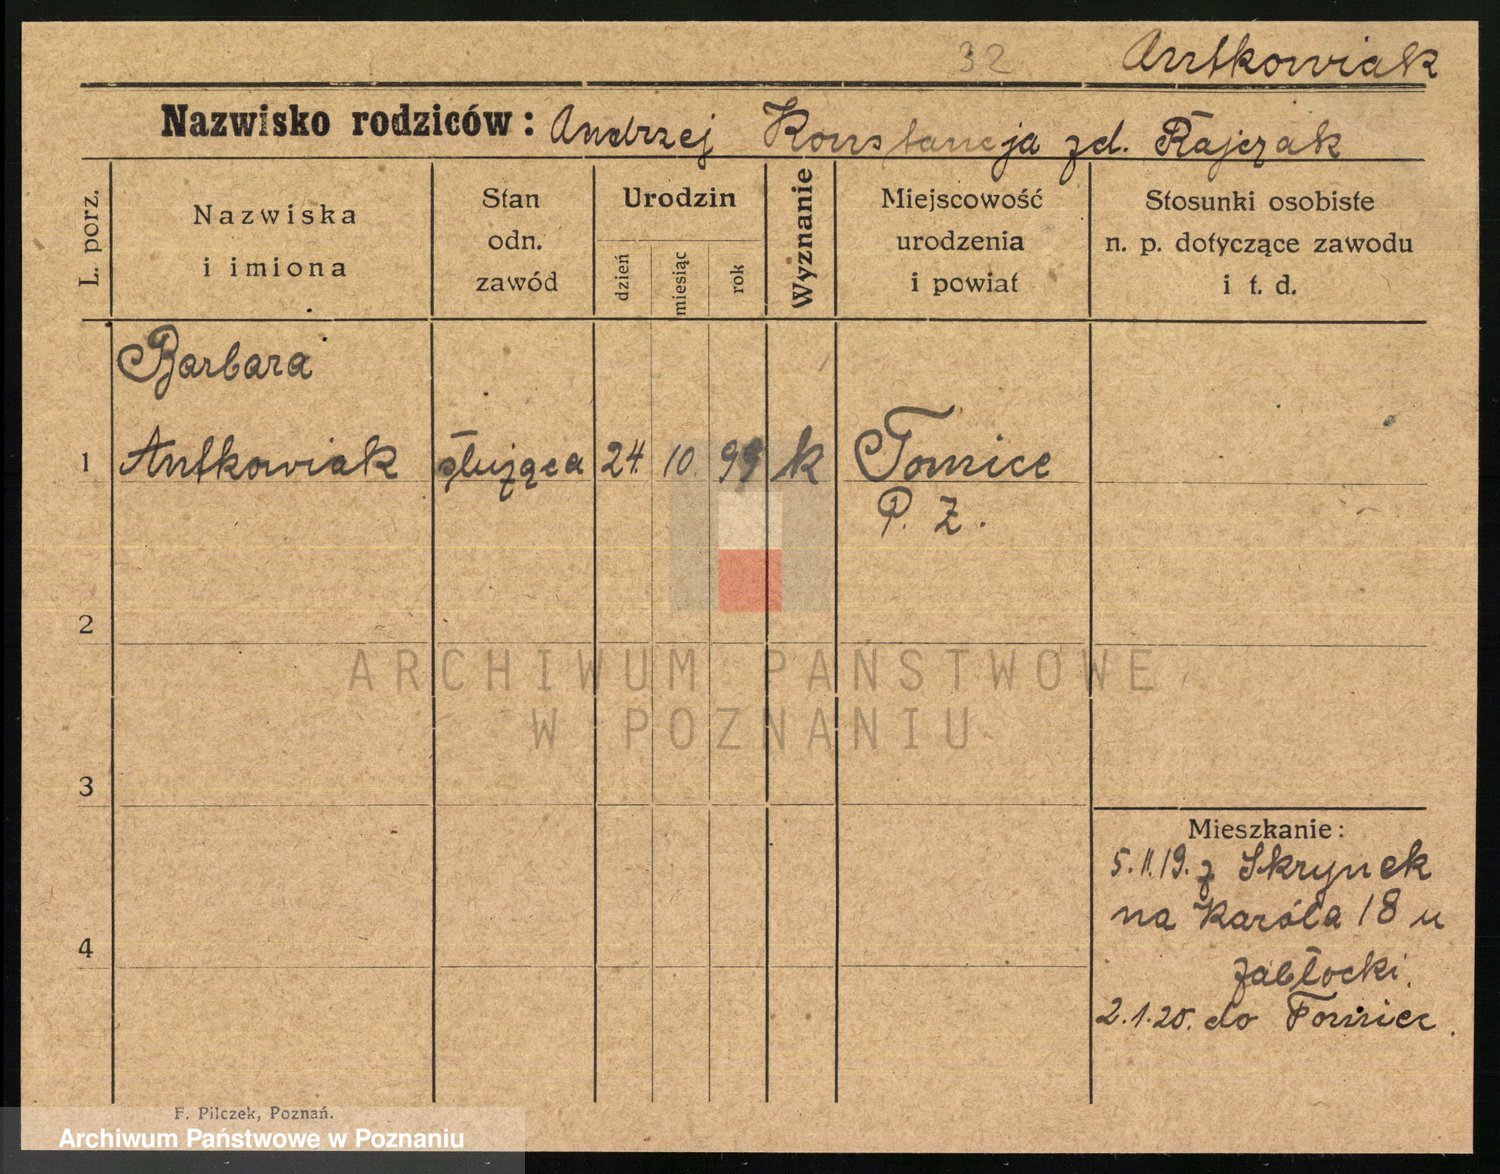 32 Antkowiak
Nazwisko rodziców: Andrzej Konstancja zd. Rajczak
L. porz.
Nazwiska
i imiona
Stan
odn.
zawód
Urodzin
dzień
miesiąc
rok
Wyznanie
Miejscowość
urodzenia
i powiat
Stosunki osobiste
n. p. dotyczące zawodu
i t. d.
Barbara
1 Antkowiak służąca 24. 10. 99 k Tomice
P. Z.
2
3
4
Mieszkanie:
5.11.19. z Skrynek
na Karóla 18 u
Zabłocki.
2.1.20. do Tomice.
ARCHIWUM PAŃSTWOWE
W POZNANIU
F. Pilczek, Poznań.
Archiwum Państwowe w Poznaniu